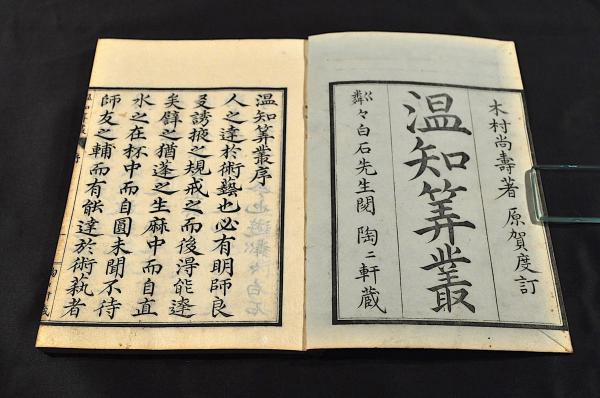 木村尚壽著 原賀度訂
温知筭叢
々白石先生閲 陶ニ軒蔵
温知筭叢序
人之達於術藝也必有明師良
友誘掖之規戒之而後得能達
矣辟之猶蓬之生麻中而自直
水之在杯中而自圓未聞不待
師友之輔而有能達於術藝者